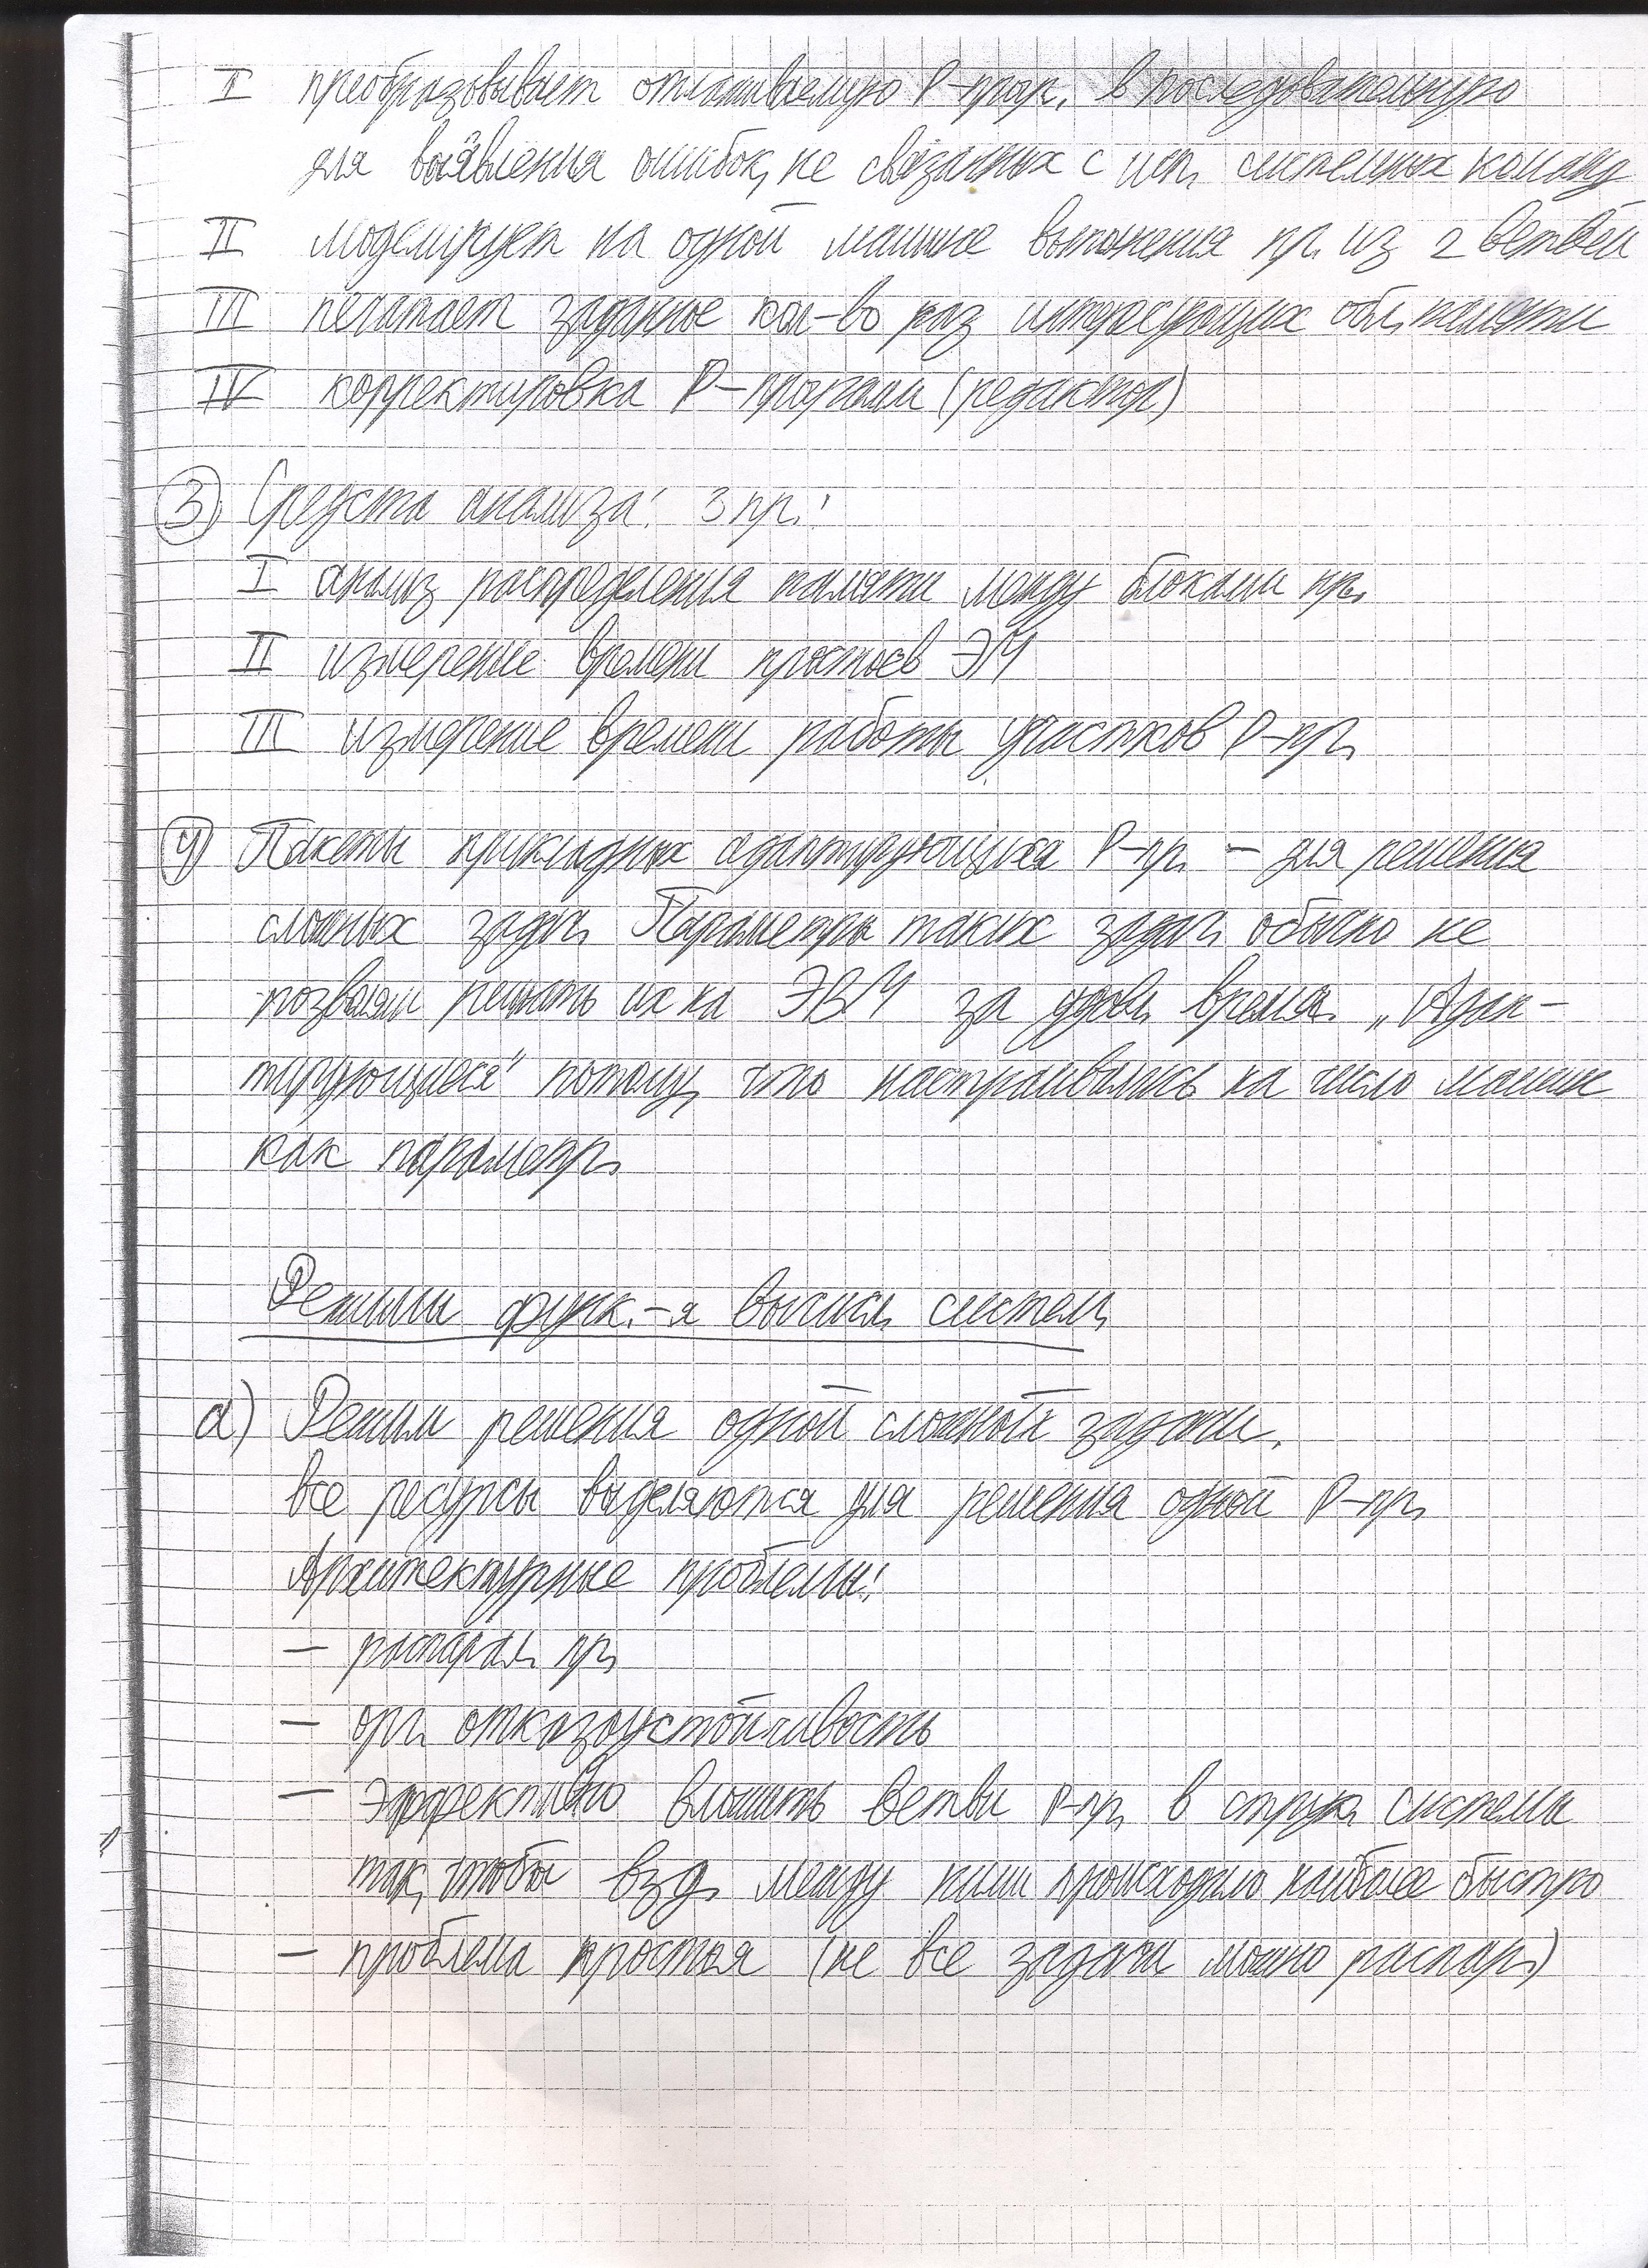 I преобразовывает отлаживаемую Р-прогр. в последовательную
для выявления ошибок, не связанных с исп. системных команд
II моделирует на одной машине выполнения пр. из 2 ветвей
III печатает заданное кол-во раз интересующих обл. памяти
IV корректировка Р-програми (редактор)
3) Средста анализа: 3 пр.:
I анализ распределения памяти между блоками пр.
II измерение времени простоев ЭМ
III измерение времени работы участков Р-пр.
4) Пакеты прикладных адаптирующихся Р-пр. – для решения
сложных задач. Параметры таких задач обычно не
позволяли решать их на ЭВМ за удовл. время. „Адап-
тирующиеся" потому, что настраивались на число машин
как параметр.
Режимы функ.-я вычисл. систем
а) Режим решения одной сложной задачи.
все ресурсы выделяются для решения одной Р-пр.
Архитектурные проблемы:
– распарал. пр.
– орг. отказоустойчивость
– Эффективно вложить ветви Р-пр. в струк. системы
так, чтобы взд. между ними происходило наиболее быстро
– проблема простоя (не все задачи можно распар.)